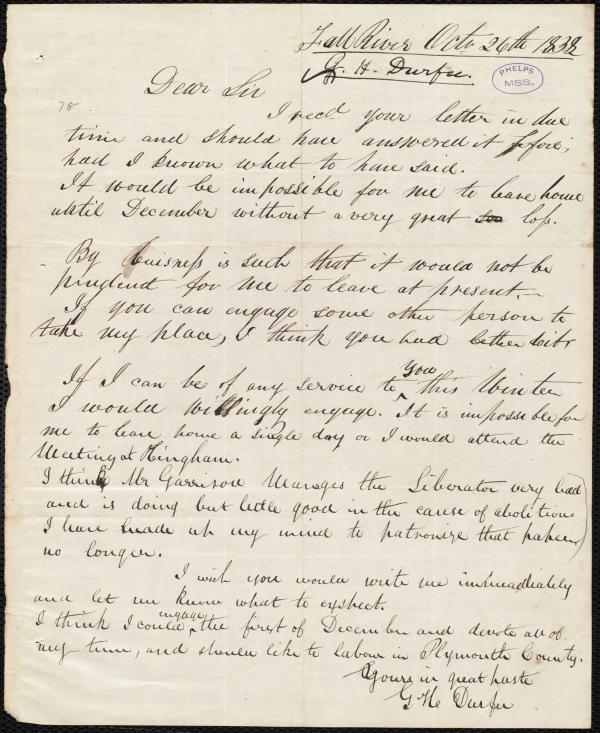 Fall River Octr 26th 1838
G. H. Durfee.
PHELPS
MSS.
78.
Dear Sir
I recd. your letter in due
time and should have answered it before,
had I known what to have said.
It would be impossible for me to leave home
until December without a very great loss.
By buisness is such that it would not be
prudent for me to leave at present.
If you can engage some other person to
take my place, I think you had better
If I can be of any service to you this Winter
I would willingly engage. It is impossible for
me to leave home a single day or I would attend the
Meeting at Hingham.
I think Mr Garrison Manages the Liberator very bad
and is doing but little good in the cause of abolition
I have made up my mind to patronize that paper
no longer.
I wish you would write me immeadiately
and let me know what to expect.
I think I could engage the first of December and devote all of
my time, and should like to labour in Plymouth County.
Yours in great haste
G H Durfee